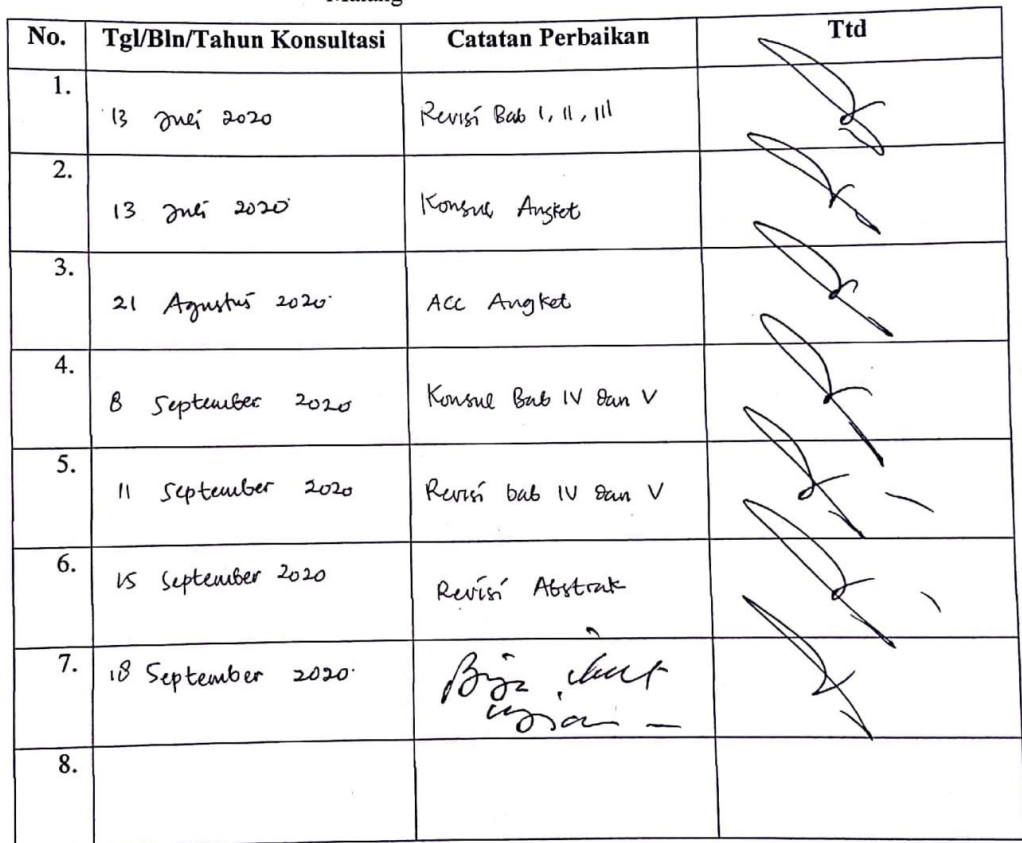 Malang
No. Tgl/Bln/Tahun Konsultasi Catatan Perbaikan Ttd
1. 13 Juli 2020 Revisi Bab I, II, III
2. 13 Juli 2020 Konsul Angket
3. 21 Agustus 2020 ACC Angket
4. 8 September 2020 Konsul Bab IV dan V
5. 11 September 2020 Revisi bab IV dan V
6. 15 September 2020 Revisi Abstrak
7. 18 September 2020 Bisa ikut
ujian
8.